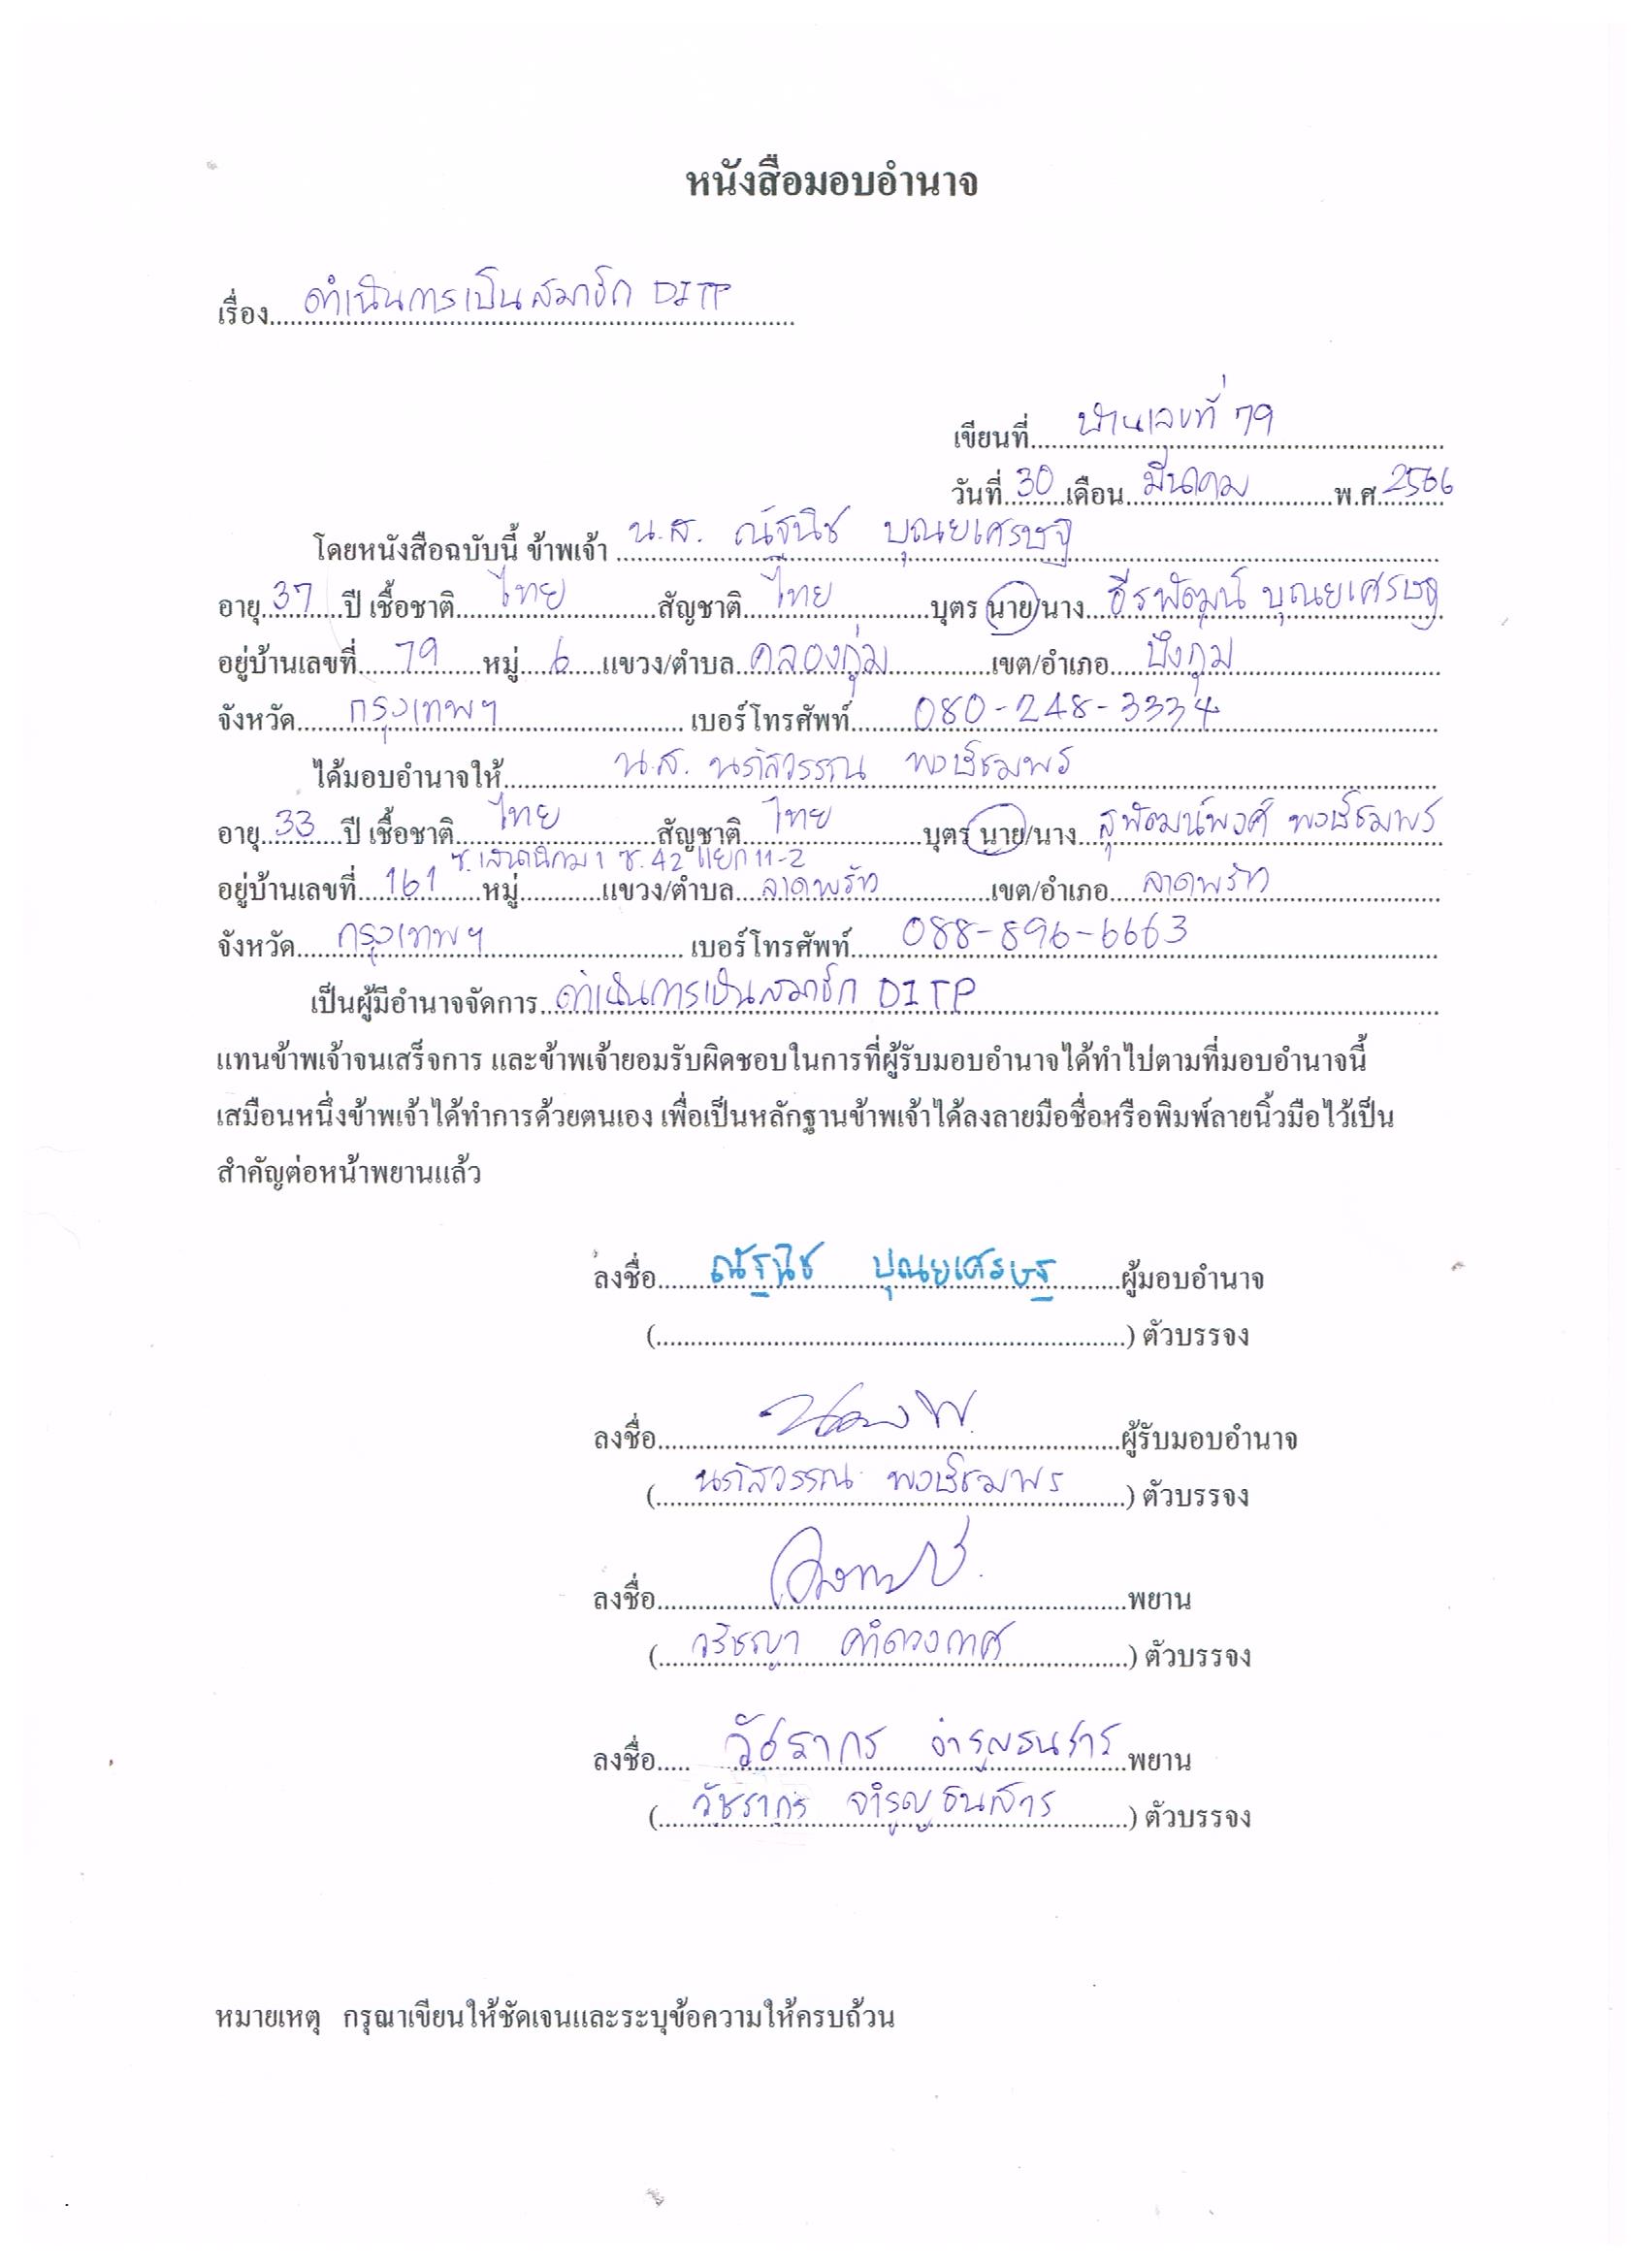 หนังสือมอบอำนาจ
เรื่อง ดำเนินการเป็นสมาชิก DITP
เขียนที่ บ้านเลขที่ 79
วันที่ 30 เดือน มีนาคม พ.ศ. 2566
โดยหนังสือฉบับนี้ ข้าพเจ้า น.ส. ณัฐนิช บุณยเศรษฐ
อายุ 37 ปี เชื้อชาติ ไทย สัญชาติ ไทย บุตร นาย/นาง ธีรพัฒน์ บุณยเศรษฐ
อยู่บ้านเลขที่ 79 หมู่ 6 แขวง/ตำบล คลองกุ่ม เขต/อำเภอ บึงกุ่ม
จังหวัด กรุงเทพฯ เบอร์โทรศัพท์ 080-248-3334
ได้มอบอำนาจให้ น.ส. นภัสวรรณ พงษ์ชมพร
อายุ 33 ปี เชื้อชาติ ไทย สัญชาติ ไทย บุตร นาย/นาง สุพัฒน์พงศ์ พงษ์ชมพร
ซ.เสนานิคม 1 ซ.42 แยก 11-2
อยู่บ้านเลขที่ 161 หมู่ แขวง/ตำบล ลาดพร้าว เขต/อำเภอ ลาดพร้าว
จังหวัด กรุงเทพฯ เบอร์โทรศัพท์ 088-896-6663
เป็นผู้มีอำนาจจัดการ ดำเนินการเป็นสมาชิก DITP
แทนข้าพเจ้าจนเสร็จการ และข้าพเจ้ายอมรับผิดชอบในการที่ผู้รับมอบอำนาจได้ทำไปตามที่มอบอำนาจนี้
เสมือนหนึ่งข้าพเจ้าได้ทำการด้วยตนเอง เพื่อเป็นหลักฐานข้าพเจ้าได้ลงลายมือชื่อหรือพิมพ์ลายนิ้วมือไว้เป็น
สำคัญต่อหน้าพยานแล้ว
ลงชื่อ ณัฐนิช บุณยเศรษฐ ผู้มอบอำนาจ
( ) ตัวบรรจง
ลงชื่อ ผู้รับมอบอำนาจ
( นภัสวรรณ พงษ์ชมพร ) ตัวบรรจง
ลงชื่อ พยาน
( วริชญา คำดวงดาศ ) ตัวบรรจง
ลงชื่อ วัชรากร จำรูญธนสาร พยาน
( วัชรากร จำรูญธนสาร ) ตัวบรรจง
หมายเหตุ กรุณาเขียนให้ชัดเจนและระบุข้อความให้ครบถ้วน